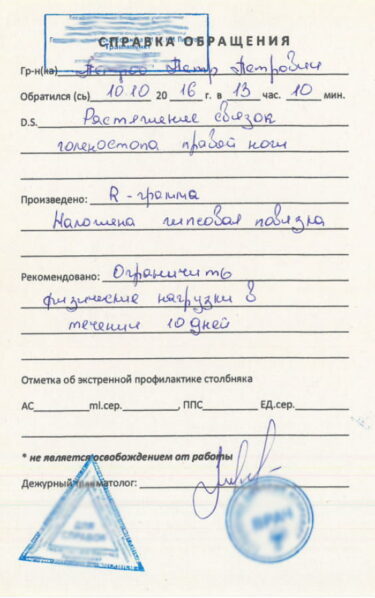 СПРАВКА ОБРАЩЕНИЯ
Гр-н(ка) Петров Петр Петрович
Обратился (сь) 10.10 2016 г. в 13 час. 10 мин.
D.S. Растяжение связок
голеностопа правой ноги
Произведено: R-грамма
Наложена гипсовая повязка
Рекомендовано: Ограничить
физические нагрузки в
течении 10 дней
Отметка об экстренной профилактике столбняка
АС ml.сер. , ППС ЕД.сер.
* не является освобождением от работы
Дежурный травматолог:
ДЛЯ
СПРАВОК
ВРАЧ